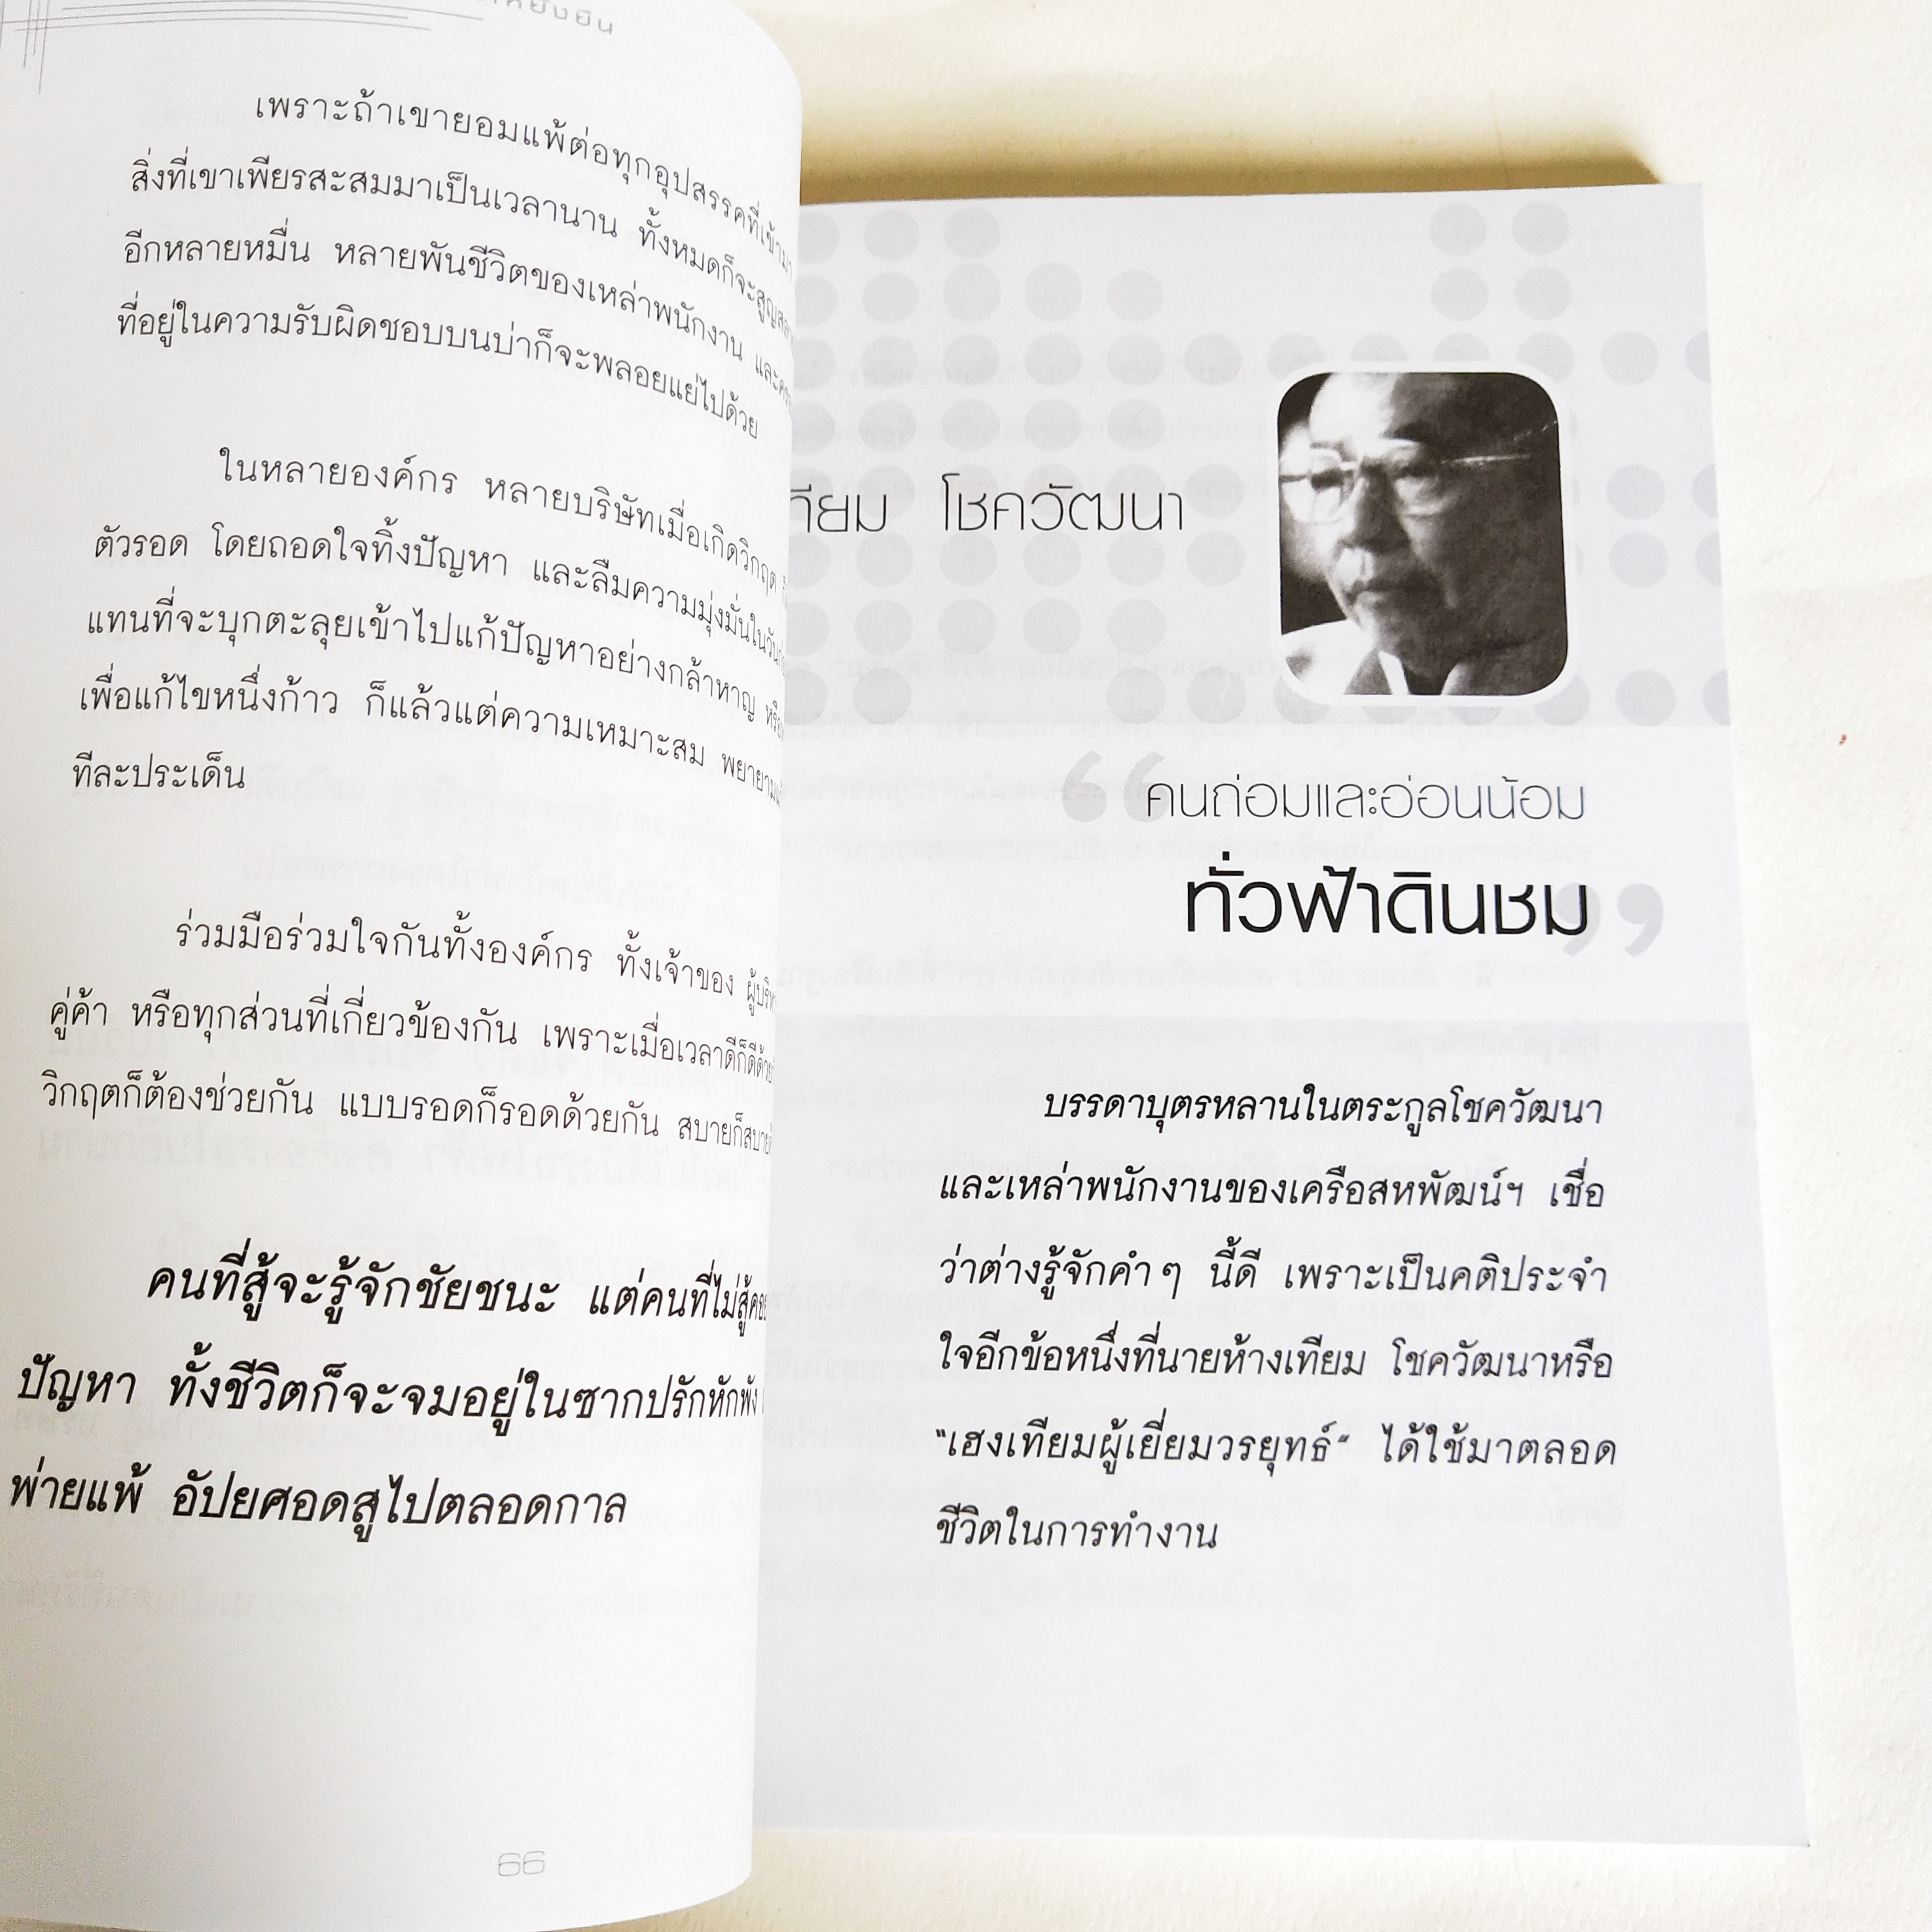 เพราะถ้าเขายอมแพ้ต่อทุกอุปสรรคที่เข้ามา
สิ่งที่เขาเพียรสะสมมาเป็นเวลานาน ทั้งหมดก็จะสูญ
อีกหลายหมื่น หลายพันชีวิตของเหล่าพนักงาน และ
ที่อยู่ในความรับผิดชอบบนบ่าก็จะพลอยแย่ไปด้วย
ในหลายองค์กร หลายบริษัทเมื่อเกิดวิกฤต
ตัวรอด โดยถอดใจทิ้งปัญหา และลืมความมุ่งมั่นในวัน
แทนที่จะบุกตะลุยเข้าไปแก้ปัญหาอย่างกล้าหาญ หรือ
เพื่อแก้ไขหนึ่งก้าว ก็แล้วแต่ความเหมาะสม พยายาม
ทีละประเด็น
ร่วมมือร่วมใจกันทั้งองค์กร ทั้งเจ้าของ
คู่ค้า หรือทุกส่วนที่เกี่ยวข้องกัน เพราะเมื่อเวลาดีก็ดีด้วย
วิกฤตก็ต้องช่วยกัน แบบรอดก็รอดด้วยกัน สบายก็สบาย
คนที่สู้จะรู้จักชัยชนะ แต่คนที่ไม่สู้
ปัญหา ทั้งชีวิตก็จะจมอยู่ในซากปรักหักพัง
พ่ายแพ้ อัปยศอดสูไปตลอดกาล
66
เทียม โชควัฒนา
“คนถ่อมและอ่อนน้อม
ทั่วฟ้าดินชม”
บรรดาบุตรหลานในตระกูลโชควัฒนา
และเหล่าพนักงานของเครือสหพัฒน์ฯ เชื่อ
ว่าต่างรู้จักคำๆ นี้ดี เพราะเป็นคติประจำ
ใจอีกข้อหนึ่งที่นายห้างเทียม โชควัฒนาหรือ
“เฮงเทียมผู้เยี่ยมวรยุทธ์“ ได้ใช้มาตลอด
ชีวิตในการทำงาน